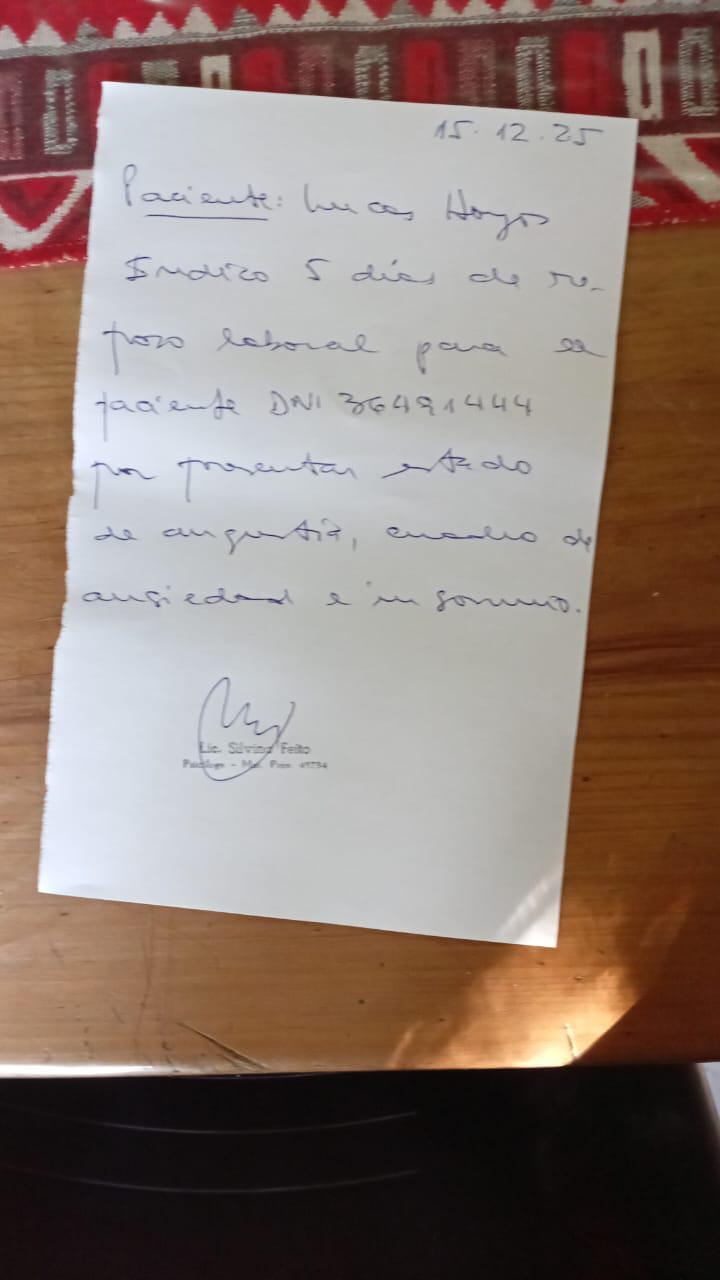 15.12.25
Paciente: Lucas Hoyos
Indico 5 días de re-
poso laboral para el
paciente DNI 36491444
por presentar estado
de angustia, cuadro de
ansiedad e insomnio.
Lic. Silvina Feito
Psicóloga - Mat. Prov. 49794